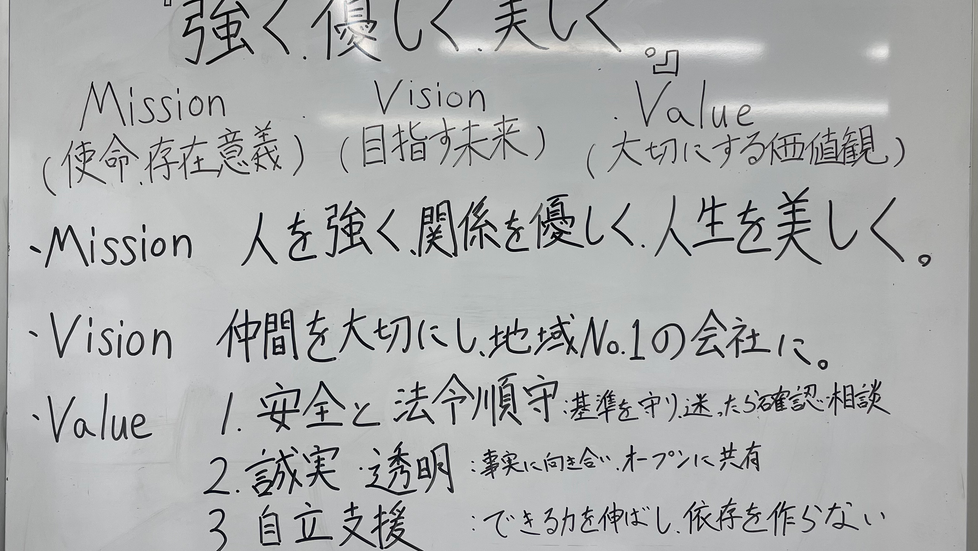 『強く、優しく、美しく。』
Mission Vision Value
(使命、存在意義) (目指す未来) (大切にする価値観)
・Mission 人を強く、関係を優しく、人生を美しく。
・Vision 仲間を大切にし、地域No.1の会社に。
・Value 1. 安全と法令順守:基準を守り、迷ったら確認・相談
2. 誠実・透明:事実に向き合い、オープンに共有
3 自立支援:できる力を伸ばし、依存を作らない